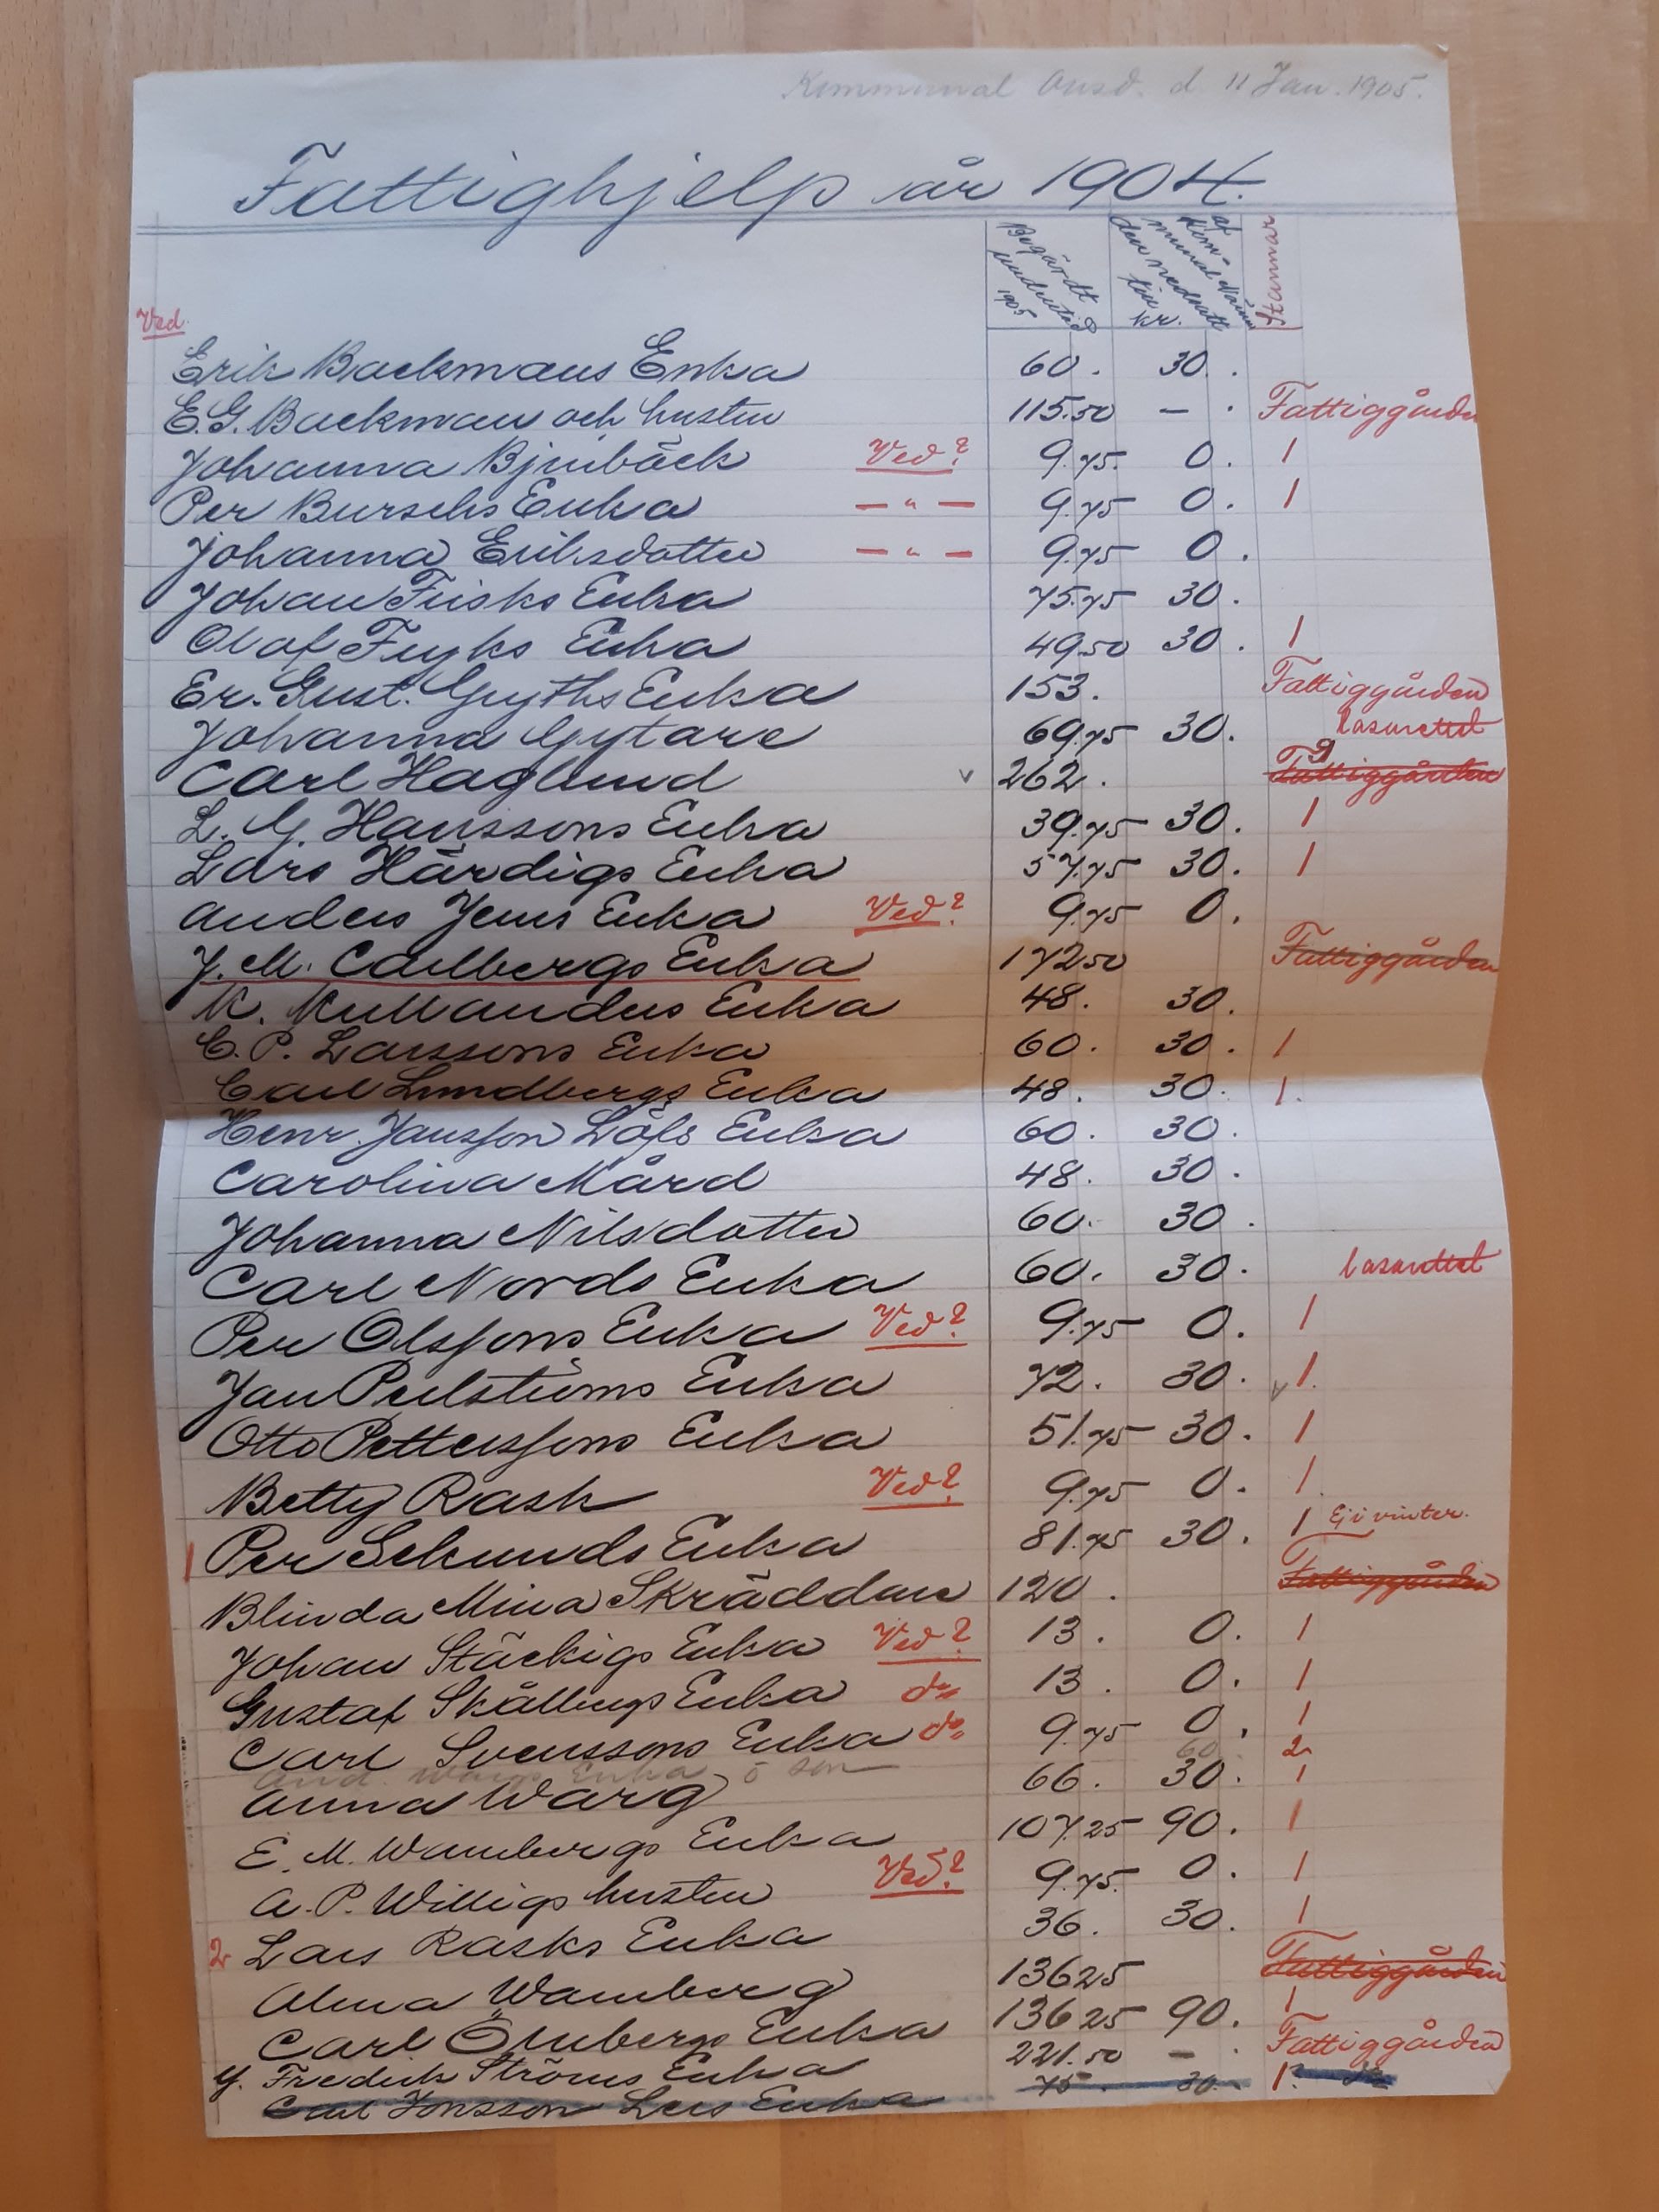 Kommunal d. 11 Jan. 1905.
Fattighjelp år 1904.
Begärdt underståd 1905
af Kommunal Nämnden nedsatt till kr.
Stannar
Ved.
Erik Backmans Enka 60. 30.
E.G. Backman och hustru 115.50 — Fattiggården
Johanna Björnbäck Ved? 9.75. 0. 1
Per Burschs Enka — " — 9.75 0. 1
Johanna Eriksdotter — " — 9.75 0.
Johan Frisks Enka 75.75 30.
Olof Fryks Enka 49.50 30. 1
Er. Gust. Gryths Enka 153. Fattiggården
Johanna Gytare 69.75 30. Lasarettet
Carl Haglund v 262. Fattiggården
L. G. Hanssons Enka 39.75 30. 1
Lars Härdigs Enka 57.75 30. 1
Anders Jerns Enka Ved? 9.75 0.
J. M. Carlbergs Enka 172 50 Fattiggården
K. Kullanders Enka 48. 30.
C. P. Larssons Enka 60. 30. 1
Carl Lundbergs Enka 48. 30. 1.
Henr. Jansson Löfs Enka 60. 30.
Carolina Mård 48. 30.
Johanna Nilsdotter 60. 30.
Carl Nords Enka 60. 30. Lasarettet
Per Olssons Enka Ved? 9.75 0. 1
Jan Perlströms Enka 72. 30. v 1.
Otto Petterssons Enka 51.75 30. 1
Betty Rask Ved? 9.75 0. 1.
1 Per Sekunds Enka 81.75 30. 1 Ej i vinter.
Blinda Mina Skräddare 120. Fattiggården
Johan Stäckigs Enka Ved? 13. 0. 1
Gustaf Skållbergs Enka do 13. 0. 1
Carl Svenssons Enka do 9.75 0. 1
And. Wargs Enka o son 60 2
Anna Warg 66. 30. 1
E. M. Wambergs Enka 107.25 90. 1
A. P. Willigs hustru Ved? 9.75. 0. 1
2 Lars Rasks Enka 36. 30. 1
Alma Wamberg 136 25 Fattiggården
Carl Örnbergs Enka 136 25 90. 1
Y. Fredrik Ströms Enka 221.50 — Fattiggården
Carl Jonsson Lers Enka 75 30 1.